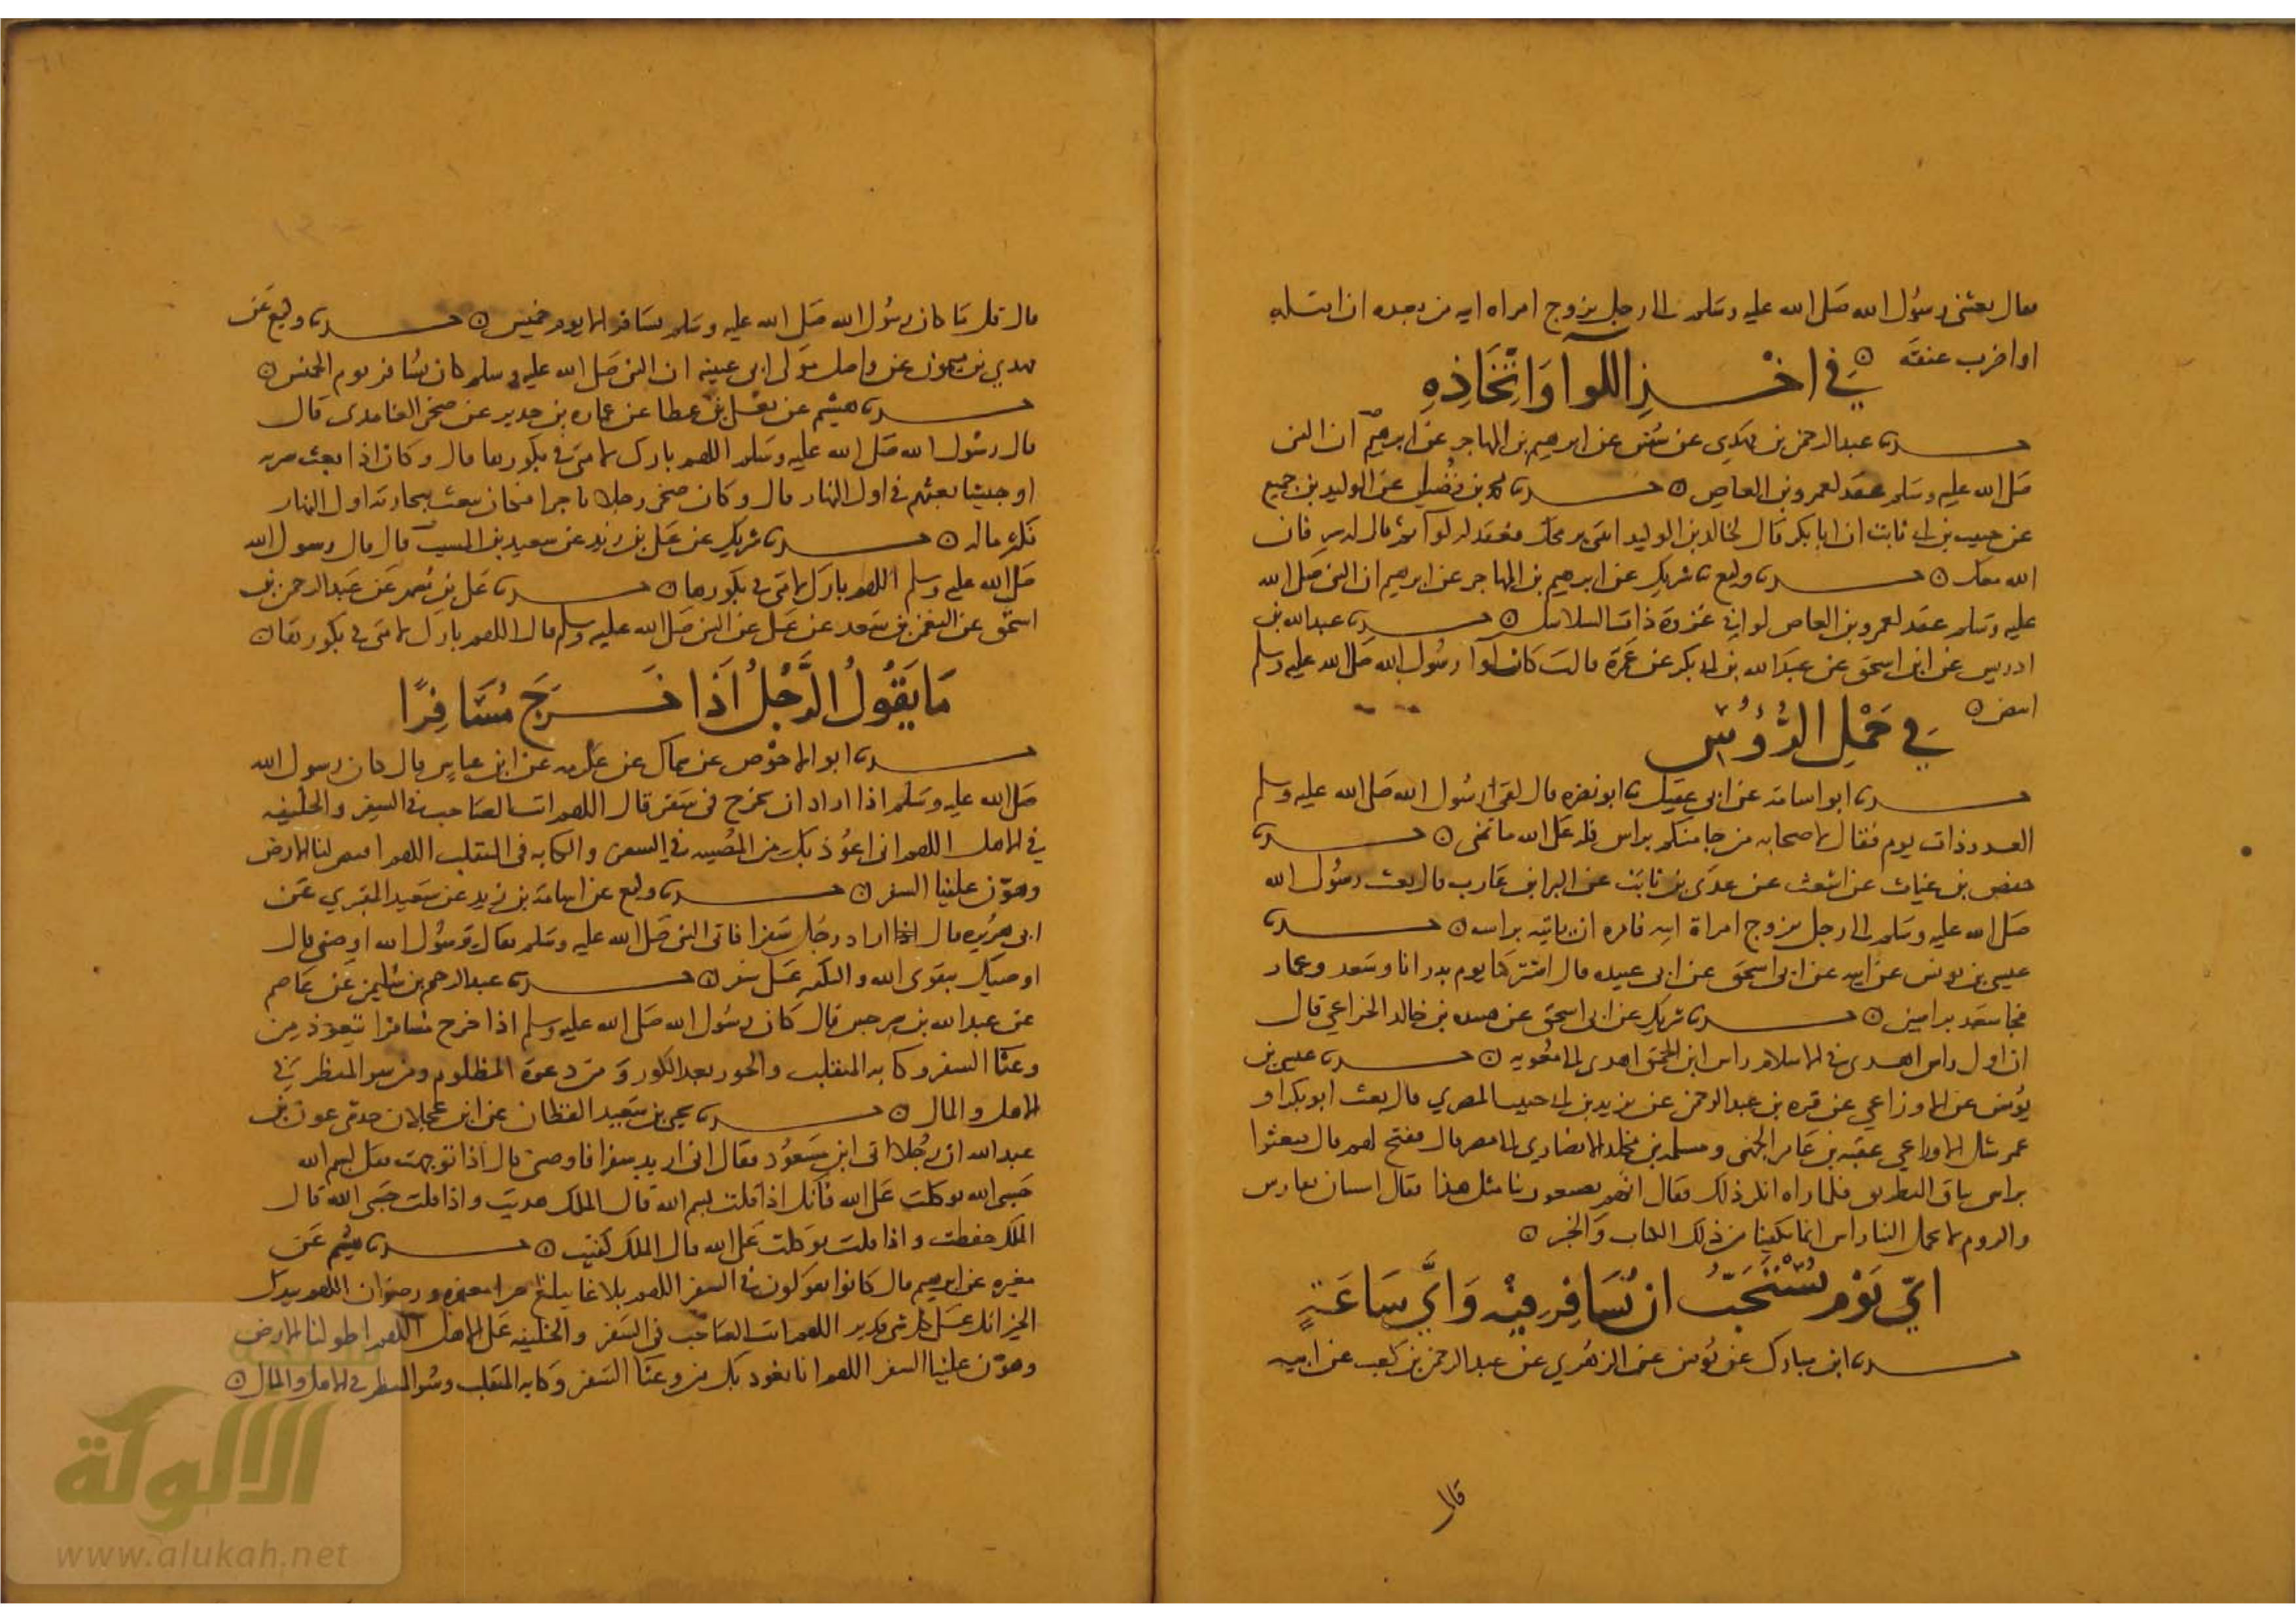 فقال بعثني رسول الله صلى الله عليه وسلم الى رجل تزوج امراه ابيه من بعده ان اقتله
او اضرب عنقه ۞
في اخذ اللوا واتخاذه
حدثنا عبد الرحمن بن مهدي عن سفين عن ابرهيم بن المهاجر عن ابرهيم ان النبي
صلى الله عليه وسلم عقد لعمرو بن العاص ۞ حدثنا محمد بن فضيل عن الوليد بن جميع
عن حبيب بن ابي ثابت ان ابا بكر قال لخالد بن الوليد فعقد له لوا ثم قال له سر فان
الله معك ۞ حدثنا وكيع نا شريك عن ابرهيم بن المهاجر عن ابرهيم ان النبي صلى الله
عليه وسلم عقد لعمرو بن العاص لوا في غزوة ذات السلاسل ۞ حدثنا عبد الله بن
ادريس عن ابن اسحق عن عبد الله بن ابي بكر عن عمرة قالت كان لوا رسول الله صلى الله عليه وسلم
ابيض ۞
في حمل الرؤس
حدثنا ابو اسامة عن ابي عقيل نا ابو نضره قال لقي رسول الله صلى الله عليه وسلم
العدو ذات يوم فقال لاصحابه من جا منكم براس فله على الله ما تمنى ۞ حدثنا
حفص بن غياث عن اشعث عن عدي بن ثابت عن البرا بن عازب قال بعث رسول الله
صلى الله عليه وسلم الى رجل تزوج امراة ابيه فامره ان ياتيه براسه ۞ حدثنا
عيسى بن يونس عن ابيه عن ابي اسحق عن ابي عبيده قال اشتركنا يوم بدر انا وسعد وعمار
فجا سعد براسين ۞ حدثنا شريك عن ابي اسحق عن هنيده بن خالد الخزاعي قال
ان اول راس اهدي في الاسلام راس ابن الحمق اهدي الى معويه ۞ حدثنا عيسى بن
يونس عن الاوزاعي عن قره بن عبد الرحمن عن يزيد بن ابي حبيب المصري قال بعث ابو بكر او
عمر شك الاوزاعي عقبه بن عامر الجهني ومسلمه بن مخلد الانصاري الى مصر قال ففتح لهم قال فبعثوا
براس يناق البطريق فلما راه انكر ذلك فقال انهم يصنعون بنا مثل هذا فقال استنان بفارس
والروم لا يحمل الينا راس انما يكفينا من ذلك الكتاب والخبر ۞
اي يوم يستحب ان يسافر فيه واي ساعة
حدثنا ابن مبارك عن يونس عن الزهري عن عبد الرحمن بن كعب عن ابيه
قال
قال قل ما كان رسول الله صلى الله عليه وسلم يسافر الا يوم خميس ۞ حدثنا وكيع عن
مهدي بن ميمون عن واصل مولى ابي عيينه ان النبي صلى الله عليه وسلم كان يسافر يوم الخميس ۞
حدثنا هشيم عن يعلى بن عطا عن عماره بن حديد عن صخر الغامدي قال
قال رسول الله صلى الله عليه وسلم اللهم بارك لامتي في بكورها قال وكان اذا بعث سريه
او جيشا بعثهم في اول النهار قال وكان صخر رجلا تاجرا فكان يبعث بتجارته اول النهار
فكثر ماله ۞ حدثنا شريك عن علي بن زيد عن سعيد بن المسيب قال قال رسول الله
صلى الله عليه وسلم اللهم بارك لامتي في بكورها ۞ حدثنا علي بن مسهر عن عبد الرحمن بن
اسحق عن النعمن بن سعد عن علي عن النبي صلى الله عليه وسلم قال اللهم بارك لامتي في بكورها ۞
ما يقول الرجل اذا خرج مسافرا
حدثنا ابو الاحوص عن سماك عن عكرمه عن ابن عباس قال كان رسول الله
صلى الله عليه وسلم اذا اراد ان يخرج في سفر قال اللهم انت الصاحب في السفر والخليفه
في الاهل اللهم اني اعوذ بك من الضبنه في السفر والكابه في المنقلب اللهم اقبض لنا الارض
وهون علينا السفر ۞ حدثنا وكيع عن اسامة بن زيد عن سعيد المقبري عن
ابي هريره قال اراد رجل سفرا فاتى النبي صلى الله عليه وسلم فقال يرسول الله اوصني قال
اوصيك بتقوى الله والتكبير على كل شرف ۞ حدثنا عبد الرحيم بن سليمن عن عاصم
عن عبد الله بن سرجس قال كان رسول الله صلى الله عليه وسلم اذا خرج مسافرا يتعوذ من
وعثا السفر وكابه المنقلب والحور بعد الكور ومن دعوة المظلوم ومن سو المنظر في
الاهل والمال ۞ حدثنا يحيى بن سعيد القطان عن ابن عجلان حدثني عون بن
عبد الله ان رجلا اتى ابن مسعود فقال اني اريد سفرا فاوصني قال اذا توجهت فقل بسم الله
حسبي الله توكلت على الله فانك اذا قلت بسم الله قال الملك هديت واذا قلت حسبي الله قال
الملك حفظت واذا قلت توكلت على الله قال الملك كفيت ۞ حدثنا هشيم عن
مغيره عن ابرهيم قال كانوا يقولون في السفر اللهم بلاغا يبلغ خيرا مغفره ورضوان اللهم بيدك
الخير انك على كل شي قدير اللهم انت الصاحب في السفر والخليفه على الاهل اللهم اطو لنا الارض
وهون علينا السفر اللهم انا نعوذ بك من وعثا السفر وكابه المنقلب وسو المنظر في الاهل والمال ۞
شبكة
الألوكة
www.alukah.net